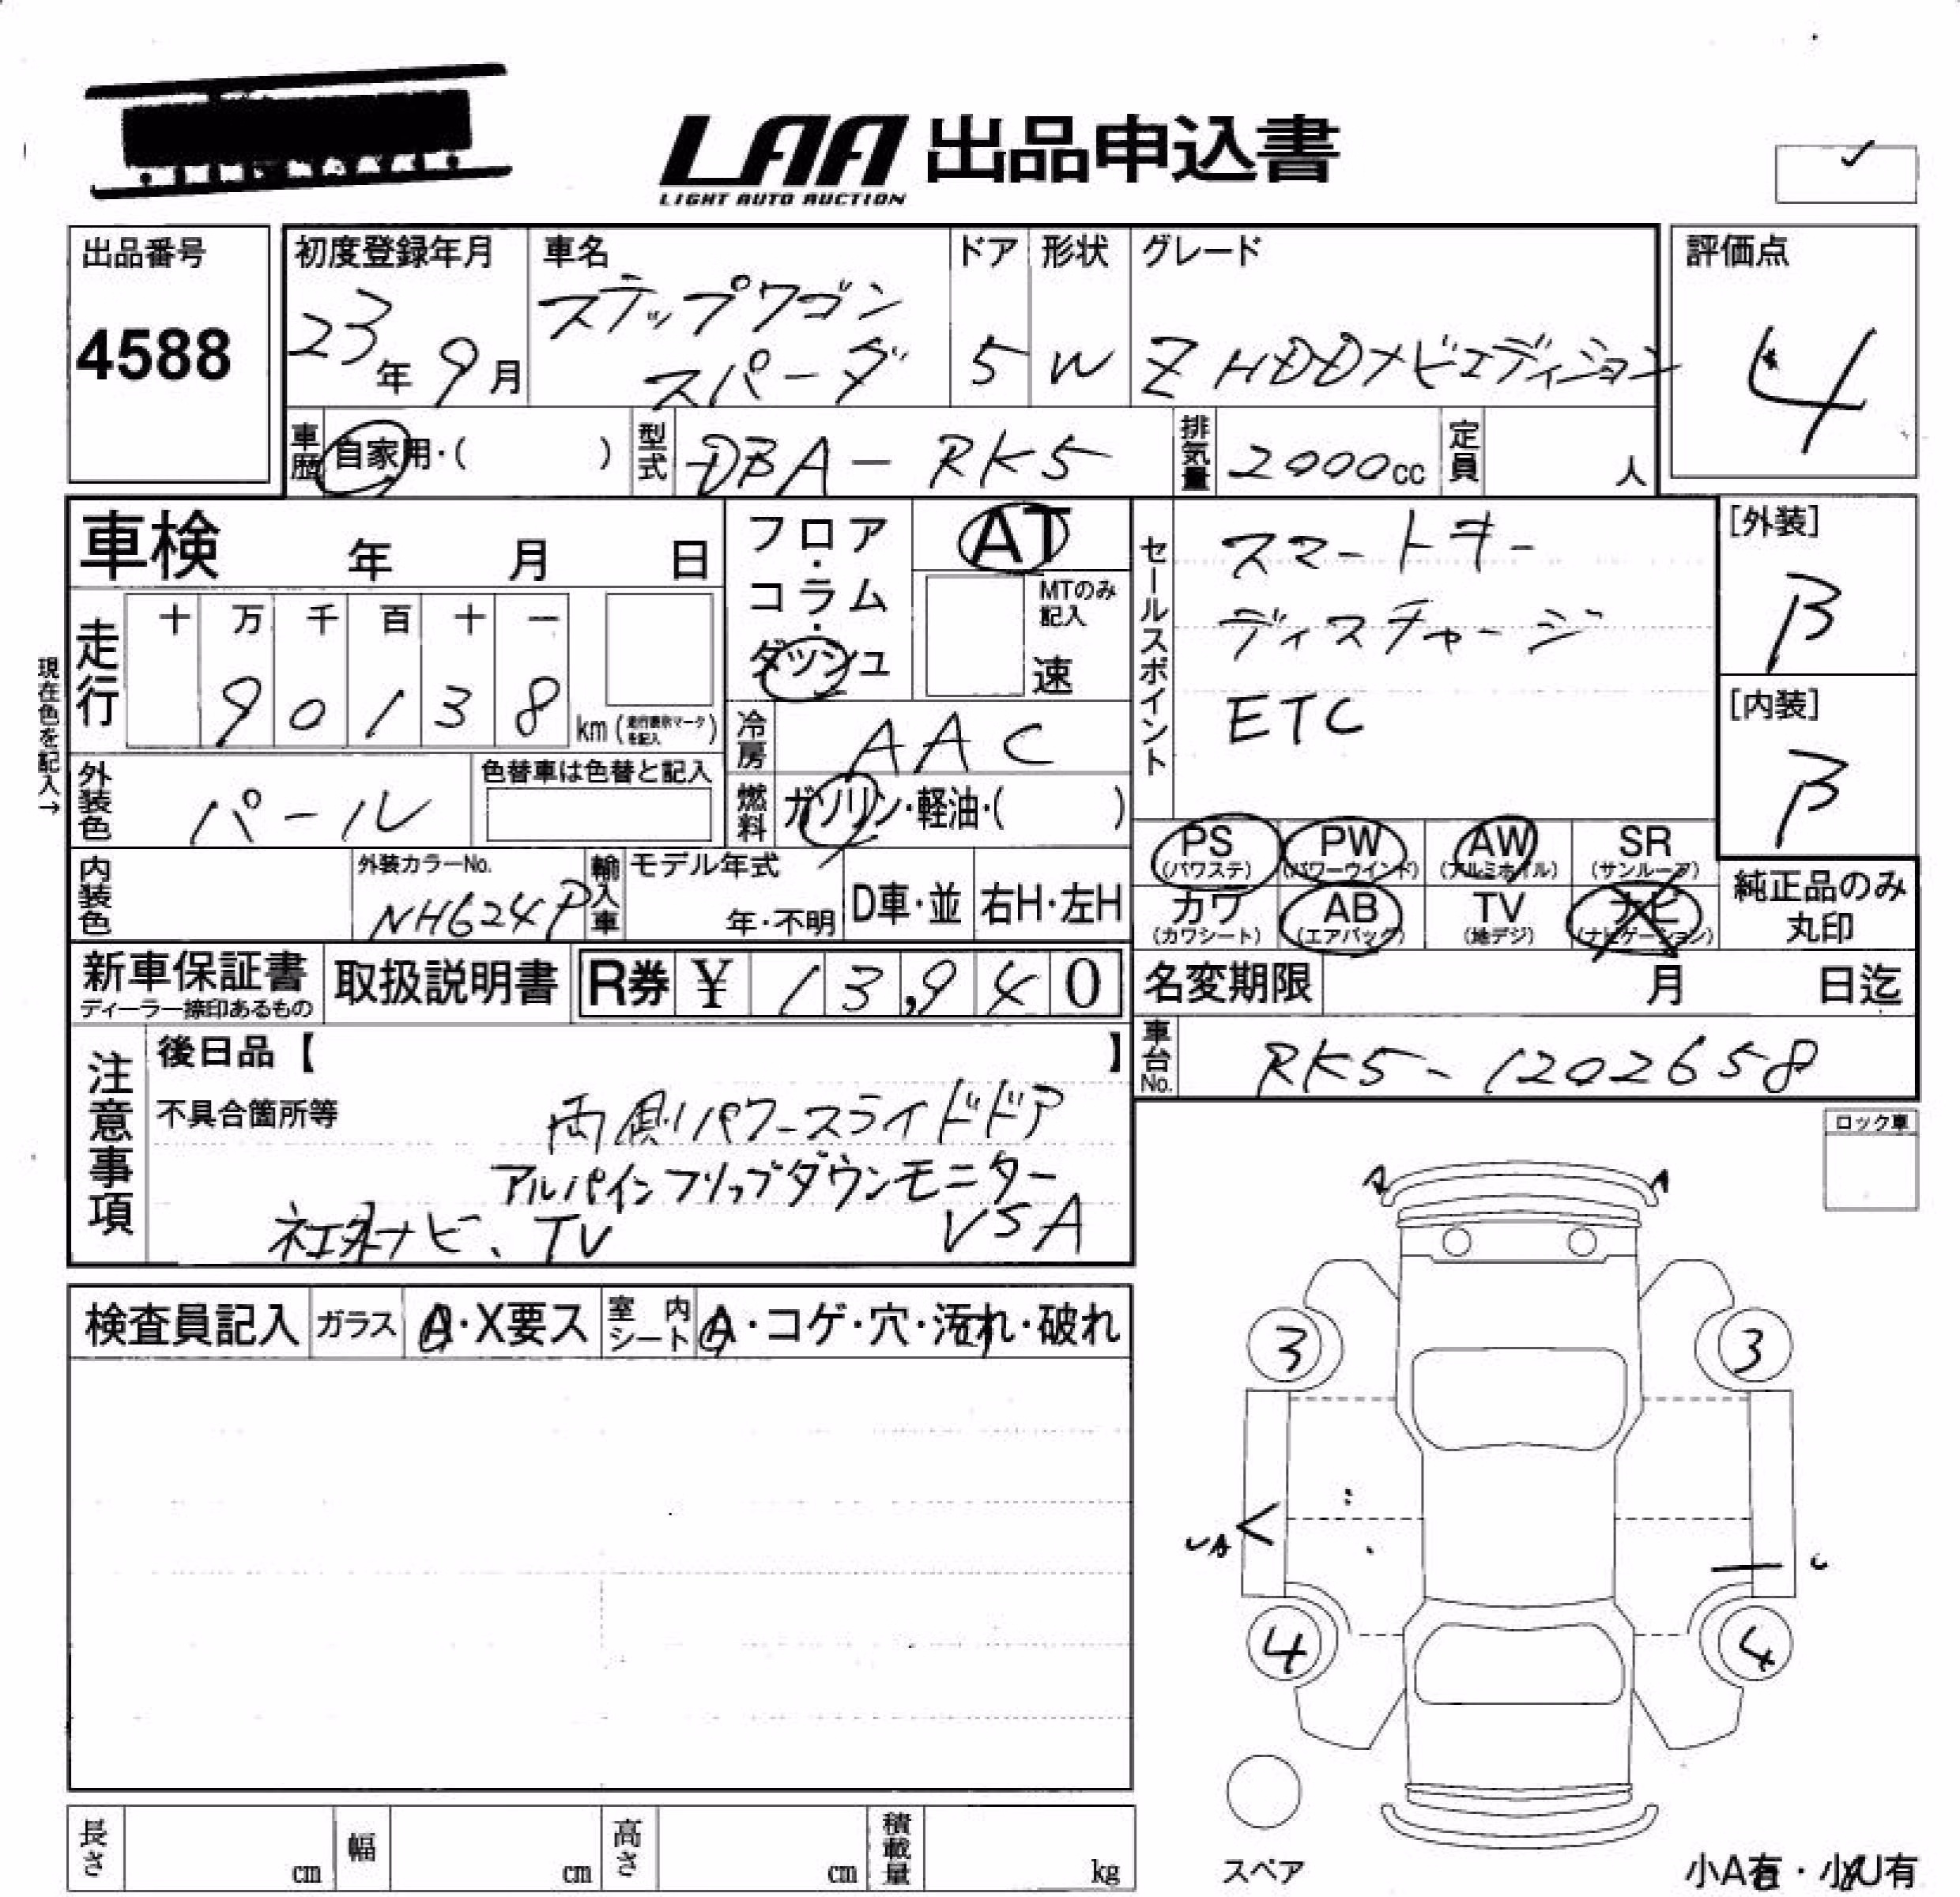 LAA 出品申込書
LIGHT AUTO AUCTION
出品番号
4588
初度登録年月
23年 9月
車名
ステップワゴン
スパーダ
ドア
5
形状
W
グレード
Z HDDナビエディション
評価点
4
車歴
自家用・( )
型式
DBA-RK5
排気量
2000cc
定員
人
車検 年 月 日
フロア・コラム・ダッシュ
AT
MTのみ記入
速
現在色を記入→
走行
十 万 千 百 十 一
9 0 1 3 8
km
冷房
AAC
外装色
パール
色替車は色替と記入
燃料
ガソリン・軽油・( )
内装色
外装カラーNo.
NH624P
輸入車
モデル年式
年・不明
D車・並
右H・左H
セールスポイント
スマートキー
ディスチャージ
ETC
[外装]
B
[内装]
B
PS (パワステ)
PW (パワーウインド)
AW (アルミホイル)
SR (サンルーフ)
カワ (カワシート)
AB (エアバック)
TV (地デジ)
ナビ (ナビゲーション)
純正品のみ丸印
新車保証書
ディーラー捺印あるもの
取扱説明書
R券 ¥ 13,940
名変期限 月 日迄
車台No.
RK5-1202658
注意事項
後日品【 】
不具合箇所等
両側パワースライドドア
アルパインフリップダウンモニター
社外ナビ、TV VSA
ロック車
検査員記入
ガラス
A・X要ス
室内シート
A・コゲ・穴・汚れ・破れ
A A
3 3
UA U
4 4
スペア
小A有・小U有
長さ cm
幅 cm
高さ cm
積載量 kg